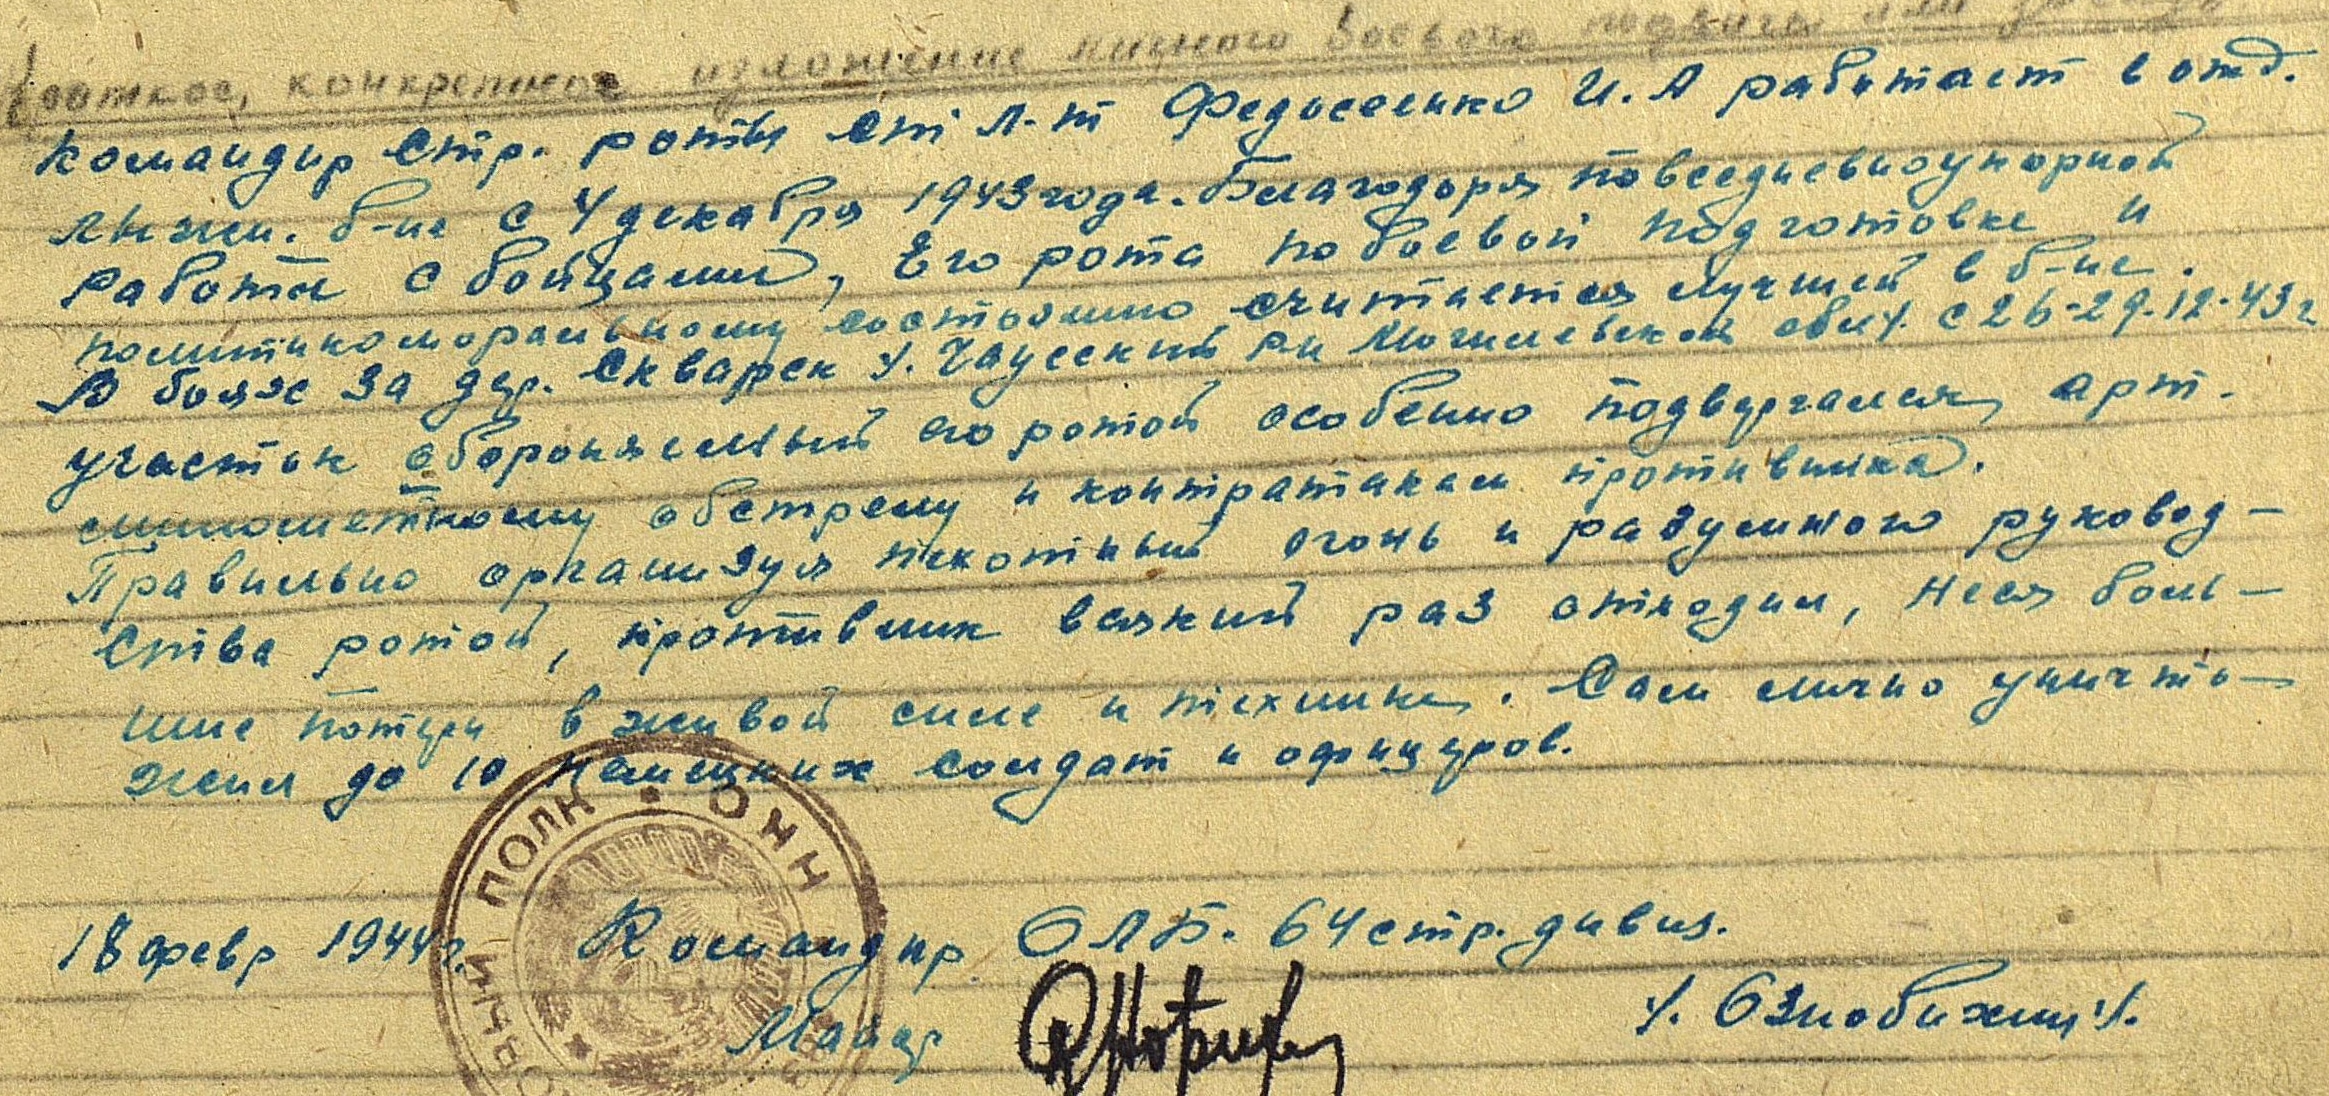 Краткое, конкретное изложение личного боевого подвига или
Командир Стр. роты Ст Л-т Федосеенко И.А работает в отд.
лыжн. б-не с 4 декабря 1943 года. Благодоря повседневноупорной
работы с бойцами, Его рота по боевой подготовке и
политикоморальному состоянию считается лучшей в б-не.
В боях за дер. Скварск /. Чаусский р-н Могилевской обл/. с 26-29.12.43г
участок обороняемый его ротой особенно подвергался, арт.
минометному обстрелу и контратакам противника.
Правильно организуя пехотный огонь и разумного руковод-
ства ротой, противник всякий раз отходил, неся боль-
шие потери в живой силе и технике. Сам лично уничто-
жил до 10 немецких солдат и офицеров.
18 февр 1944 г. Командир ОЛБ. 64 стр. дивиз.
Майор /. Ознобихин /.
ПОЛК • ОКНН